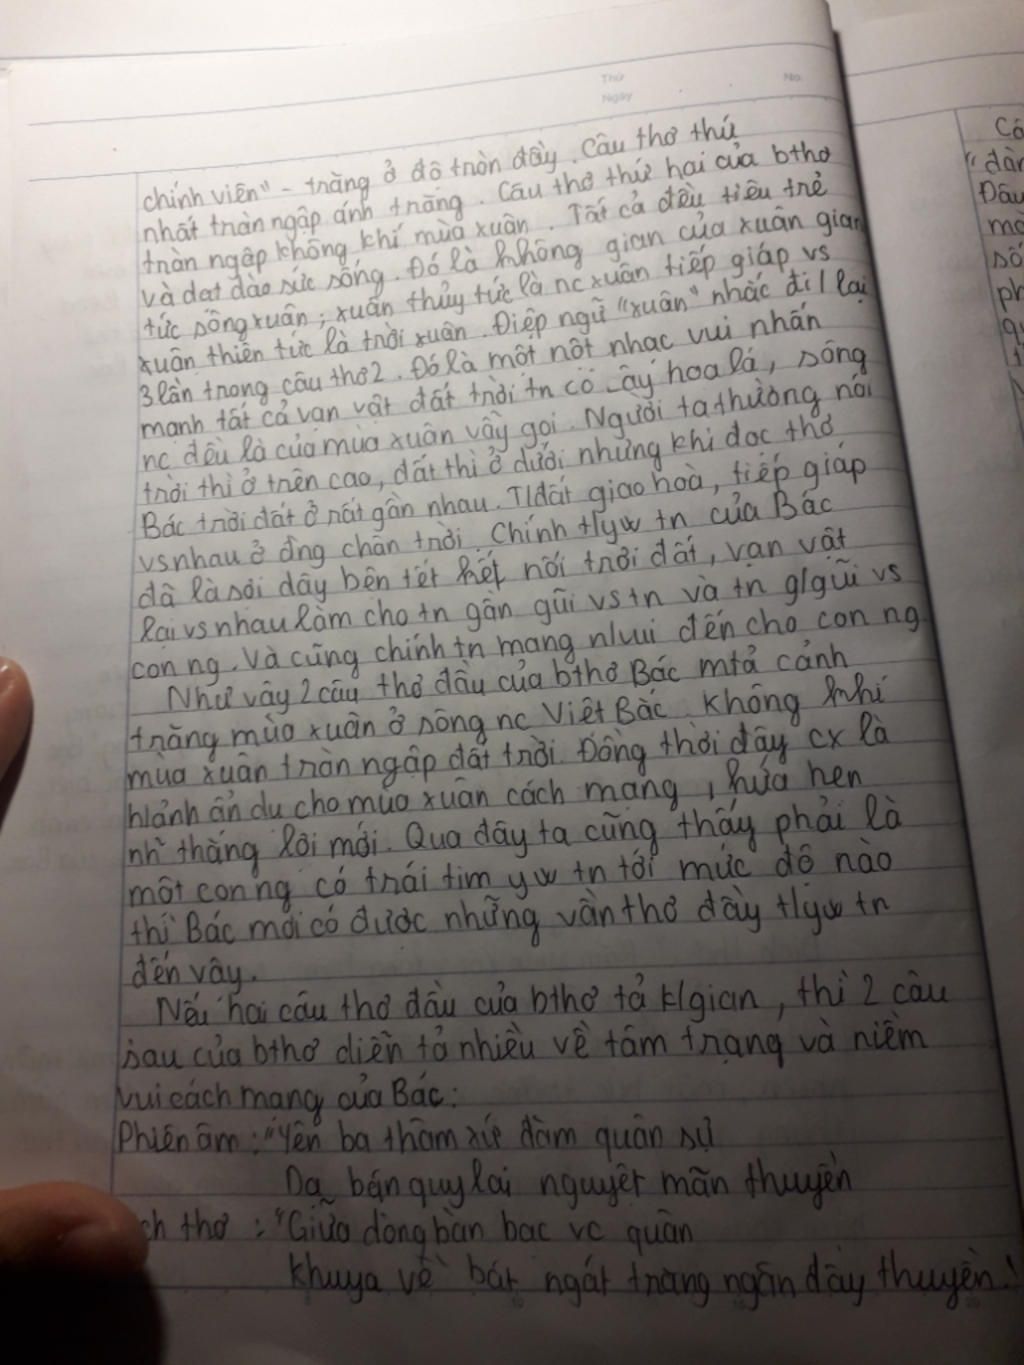 Thứ
Ngày
No.
chính viên" - trăng ở độ tròn đầy. Câu thơ thứ
nhất tràn ngập ánh trăng. Câu thơ thứ hai của bthơ
tràn ngập không khí mùa xuân. Tất cả đều tiêu trẻ
và dạt dào sức sống. Đó là không gian của xuân gian
tức sông xuân; xuân thủy tức là nc xuân tiếp giáp vs
xuân thiên tức là trời xuân. Điệp ngữ "xuân" nhắc đi l lại
3 lần trong câu thơ 2. Đó là một nốt nhạc vui nhấn
mạnh tất cả vạn vật đất trời tn cỏ cây hoa lá, sông
nc đều là của mùa xuân vẫy gọi. Người ta thường nói
trời thì ở trên cao, đất thì ở dưới nhưng khi đọc thơ
Bác trời đất ở rất gần nhau. T/đất giao hoà, tiếp giáp
vs nhau ở đng chân trời. Chính t/yw tn của Bác
đã là sợi dây bện tết kết nối trời đất, vạn vật
lại vs nhau làm cho tn gần gũi vs tn và tn g/gũi vs
con ng. Và cũng chính tn mang n/vui đến cho con ng.
Như vậy 2 câu thơ đầu của bthơ Bác mtả cảnh
trăng mùa xuân ở sông nc Việt Bắc. Không khí
mùa xuân tràn ngập đất trời. Đồng thời đây cx là
h/ảnh ẩn dụ cho mùa xuân cách mạng, hứa hẹn
nh~ thắng lợi mới. Qua đây ta cũng thấy phải là
một con ng có trái tim yw tn tới mức độ nào
thì Bác mới có được những vần thơ đầy t/yw tn
đến vậy.
Nếu hai câu thơ đầu của bthơ tả k/gian, thì 2 câu
sau của bthơ diễn tả nhiều về tâm trạng và niềm
vui cách mạng của Bác:
Phiên âm: "Yên ba thâm xứ đàm quân sự
Dạ bán quy lai nguyệt mãn thuyền
ch thơ: "Giữa dòng bàn bạc vc quân
Khuya về bát ngát trăng ngân đầy thuyền."
Có
"dàn
Đâu
mà
số
ph